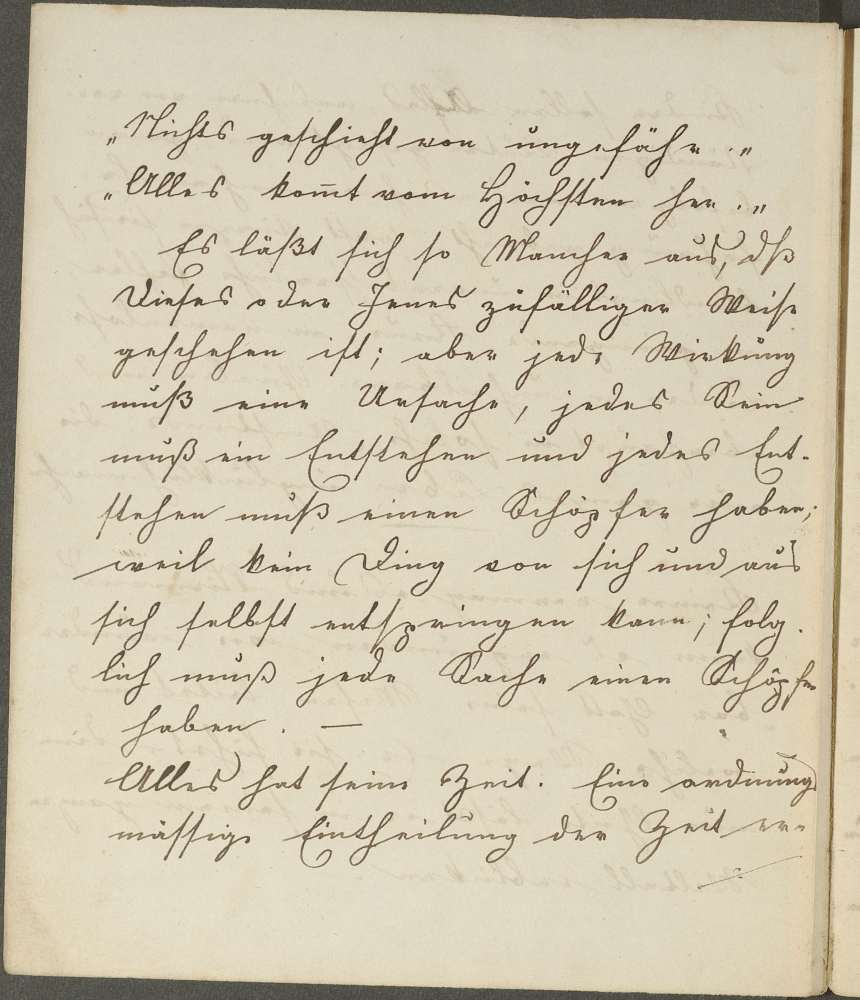 „Nichts geschieht von ungefähr."
„Alles kom̅t vom Höchsten her."
Es läßt sich so Mancher aus, dß
Dieses oder Jenes zufälliger Weise
geschehen ist; aber jede Wirkung
muß eine Ursache, jedes Sein
muß ein Entstehen und jedes Ent-
stehen muß einen Schöpfer haben;
weil kein Ding von sich und aus
sich selbst entspringen kann; folg-
lich muß jede Sache einen Schöpfer
haben. —
Alles hat seine Zeit. Eine ordnungs
mässige Eintheilung der Zeit er-